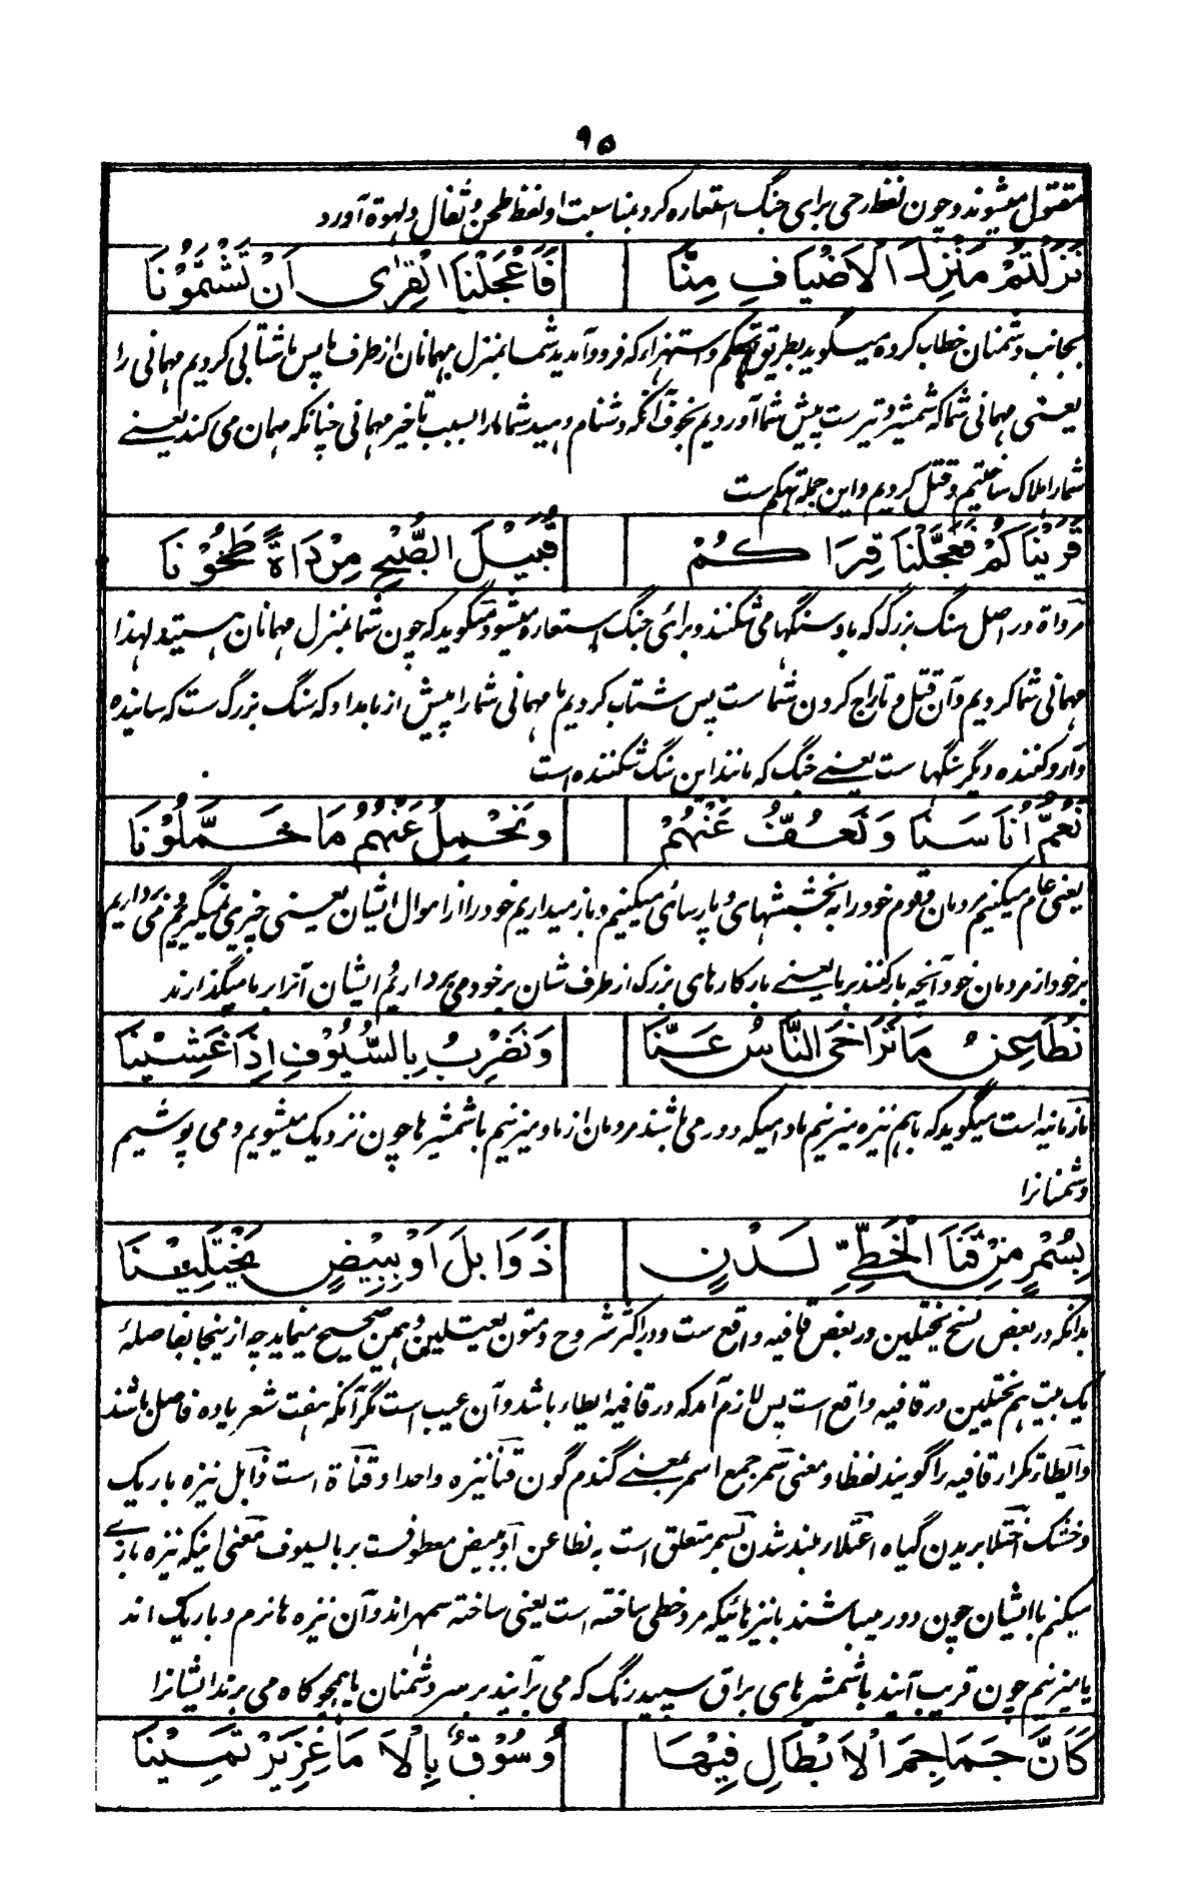 ۹۵
مقتول میشوند و چون لفظ رحی برای جنگ استعاره کرد بمناسبت او لفظ طحن و ثفال و لهوة آورد
نَزَلْتُمْ مَنْزِلَ الْاَضْيَافِ مِنَّا فَاَعْجَلْنَا الْقِرٰى اَنْ تَشْتَمُوْنَا
بجانب دشمنان خطاب کرده میگوید بطریق تهکم و استهزاء که فرود آمدید شما بمنزل مهمانان از طرف ما پس ما شتابی کردیم مهمانی را
یعنی مهمانی شما که شمشیر و تیرست پیش شما آوردیم بخوف آنکه دشنام دهید شما مارا بسبب تاخیر مهمانی چنانکه مهمان می کند یعنے
شمارا هلاک ساختیم و قتل کردیم و این جمله تهکم ست
قَرَيْنَاكُمْ فَعَجَّلْنَا قِرَاكُمْ قُبَيْلَ الصُّبْحِ مِرْدَاةً طَحُوْنَا
مرداة در اصل سنگ بزرگ که باو سنگها می شکنند و برائی جنگ استعاره میشود میگوید که چون شما بمنزل مهمانان هستید لهذا
مهمانی شما کردیم و آن قتل و تاراج کردن شما ست پس شتاب کردیم ما مهمانی شمارا پیش از بامداد که سنگ بزرگ ست که ساینده
و آرد کننده دیگر سنگها ست یعنے جنگ که مانند این سنگ شکننده است
نَعُمُّ اُنَاسَنَا وَنَعُفُّ عَنْهُمْ وَنَحْمِلُ عَنْهُمُ مَا حَمَّلُوْنَا
یعنی عام میکنیم مردمان قوم خود را به بخششهای و پارسائی میکنیم و باز میداریم خود را از اموال ایشان یعنی چیزی نمیگیریم و می برداریم
بر خود از مردمان خود آنچه بار کنند بر ما یعنے بار کارهای بزرگ از طرف شان بر خود می برداریم ایشان آنرا بر ما میگذارند
نُطَاعِنُ مَا تَرَاخَى النَّاسُ عَنَّا وَنَضْرِبُ بِالسُّيُوْفِ اِذَا غَشِيْنَا
ما زمانیه است میگوید که باهم نیزه میزنیم مادامیکه دور می باشند مردمان از ما و میزنیم با شمشیرها چون نزدیک میشویم و می پوشیم
دشمنانرا
بِسُمْرٍ مِنْ قَنَا الْخَطِّيِّ لَدْنٍ ذَوَابِلَ اَوْ بِبِيْضٍ يَخْتَلِيْنَا
بدانکه در بعض نسخ یختلین در بعض قافیه واقع ست و در اکثر شروح و متون یعتلین و همین صحیح مینماید چه از ینجا بفاصلۀ
یک بیت هم یختلین در قافیه واقع است پس لازم آمد که در قافیه ایطاء باشد و آن عیب است مگر آنکه هفت شعر یا ده فاصل باشند
و ایطاء تکرار قافیه را گویند لفظا و معنی سمر جمع اسمر بمعنے گندم گون قنا نیزه واحد او قناة است ذابل نیزه باریک
و خشک اختلا بریدن گیاه اعتلا بلند شدن بسمر متعلق است به نطاعن او ببیض معطوفست بر بالسیوف معنی اینکه نیزه بازے
میکنیم با ایشان چون دور میباشند با نیزهائیکه مرد خطی ساخته است یعنی ساخته سمهر اند و آن نیزه ها نرم و باریک اند
یا میزنیم چون قریب آیند با شمشیرهای براق سپید رنگ که می برآیند بر سر دشمنان یا همچو کاه می برند ایشانرا
كَاَنَّ جَمَاجِمَ الْاَبْطَالِ فِيْهَا وُسُوْقٌ بِالْاَمَاعِزِ يَرْتَمِيْنَا